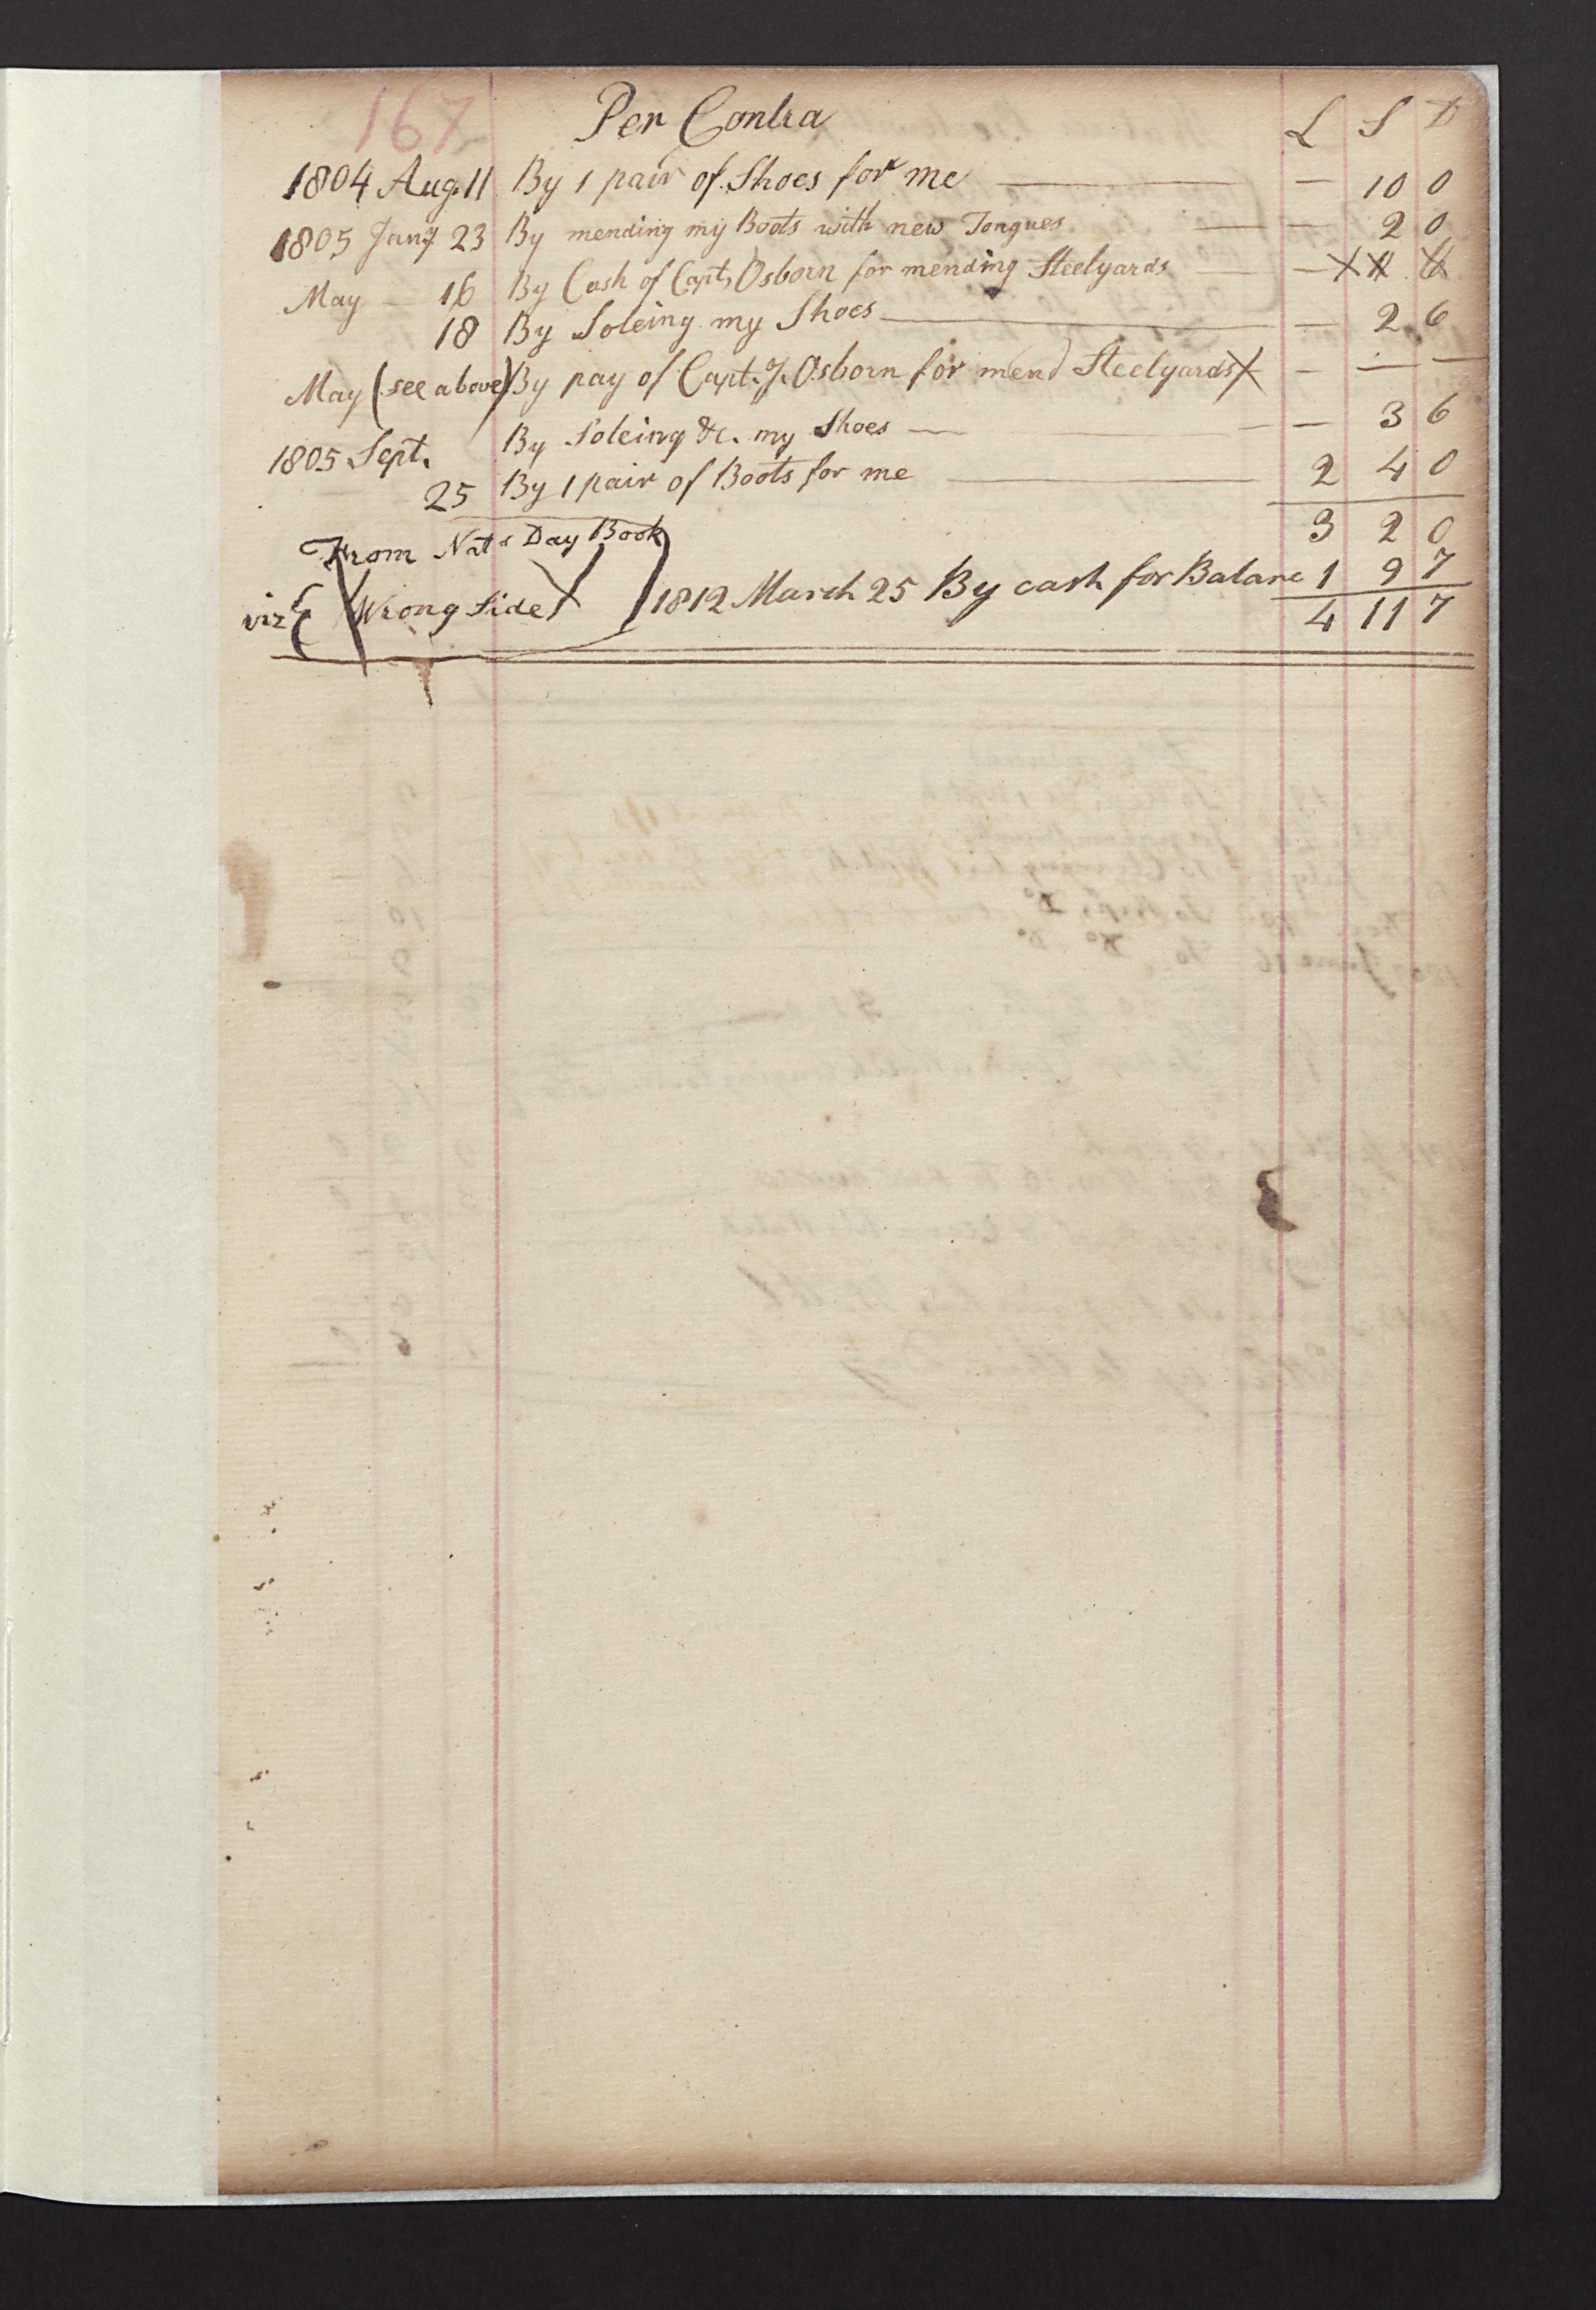 167 Per Contra L S D
1804 Aug. 11 By 1 pair of Shoes for me — 10 0
1805 Jany 23 By mending my Boots with new Tongues — 2 0
May — 16 By Cash of Capt. Osborn for mending Steelyards —
18 By Soleing my Shoes — 2 6
May (see above) By pay of Capt. J. Osborn for mend Steelyards X — — —
1805 Sept. By Soleing &c. my Shoes — 3 6
25 By 1 pair of Boots for me 2 4 0
3 2 0
From Nat's Day Book
viz { Wrong Side 1812 March 25 By cash for Balanc 1 9 7
4 11 7